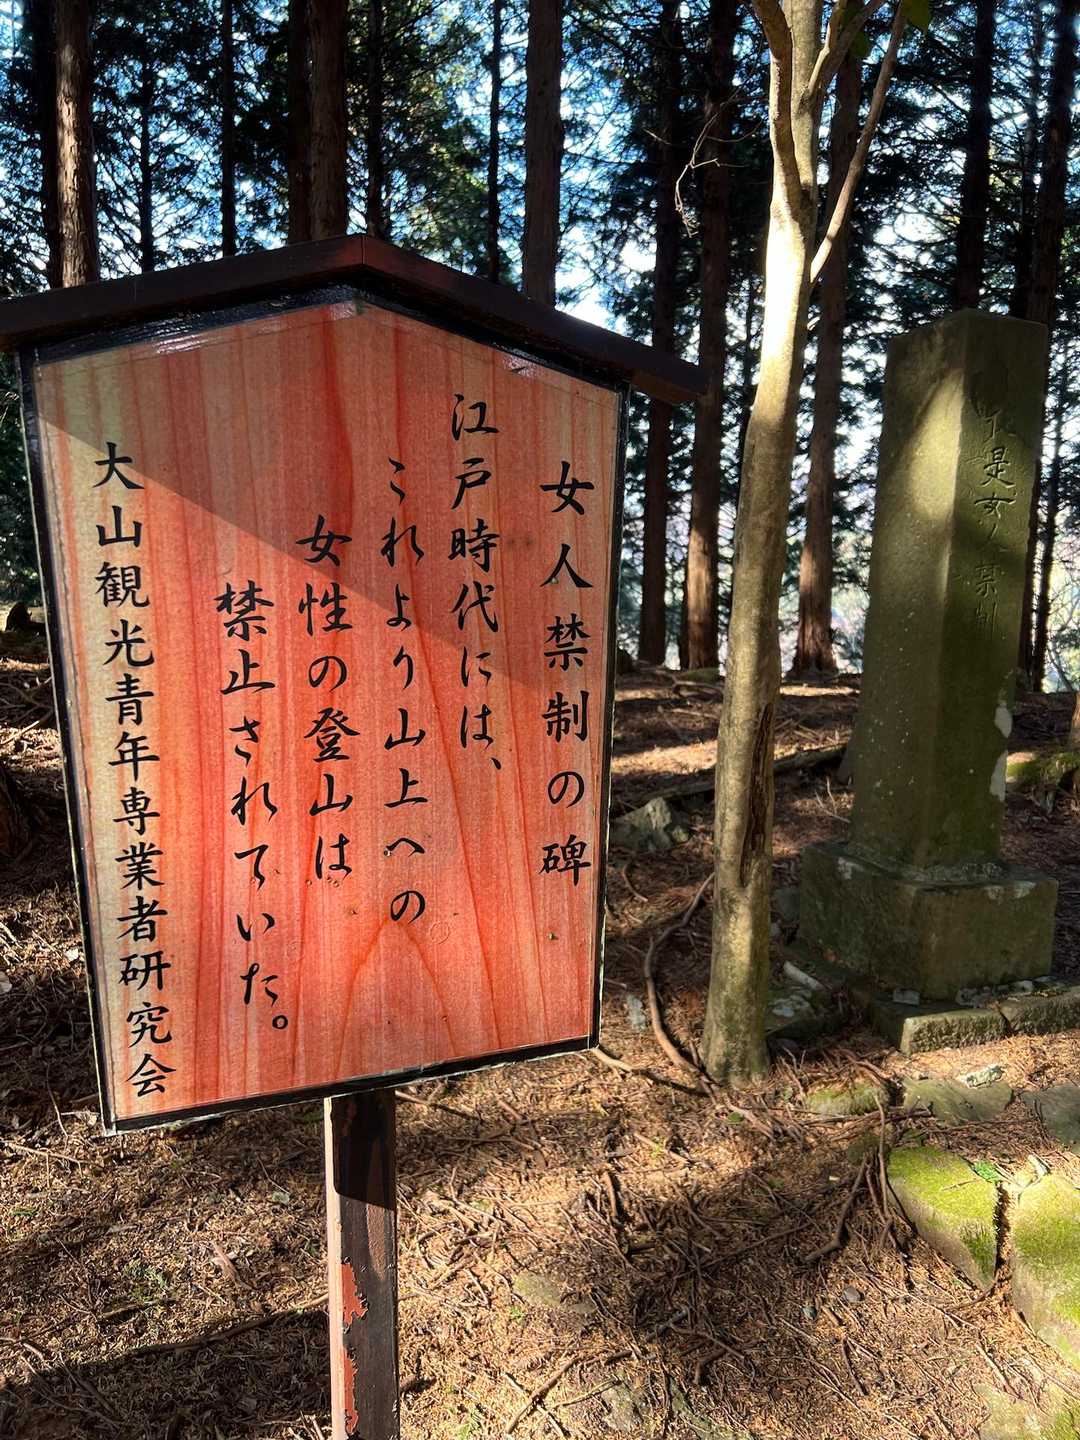 女人禁制の碑
江戸時代には、
これより山上への
女性の登山は
禁止されていた。
大山観光青年専業者研究会
是女人禁制